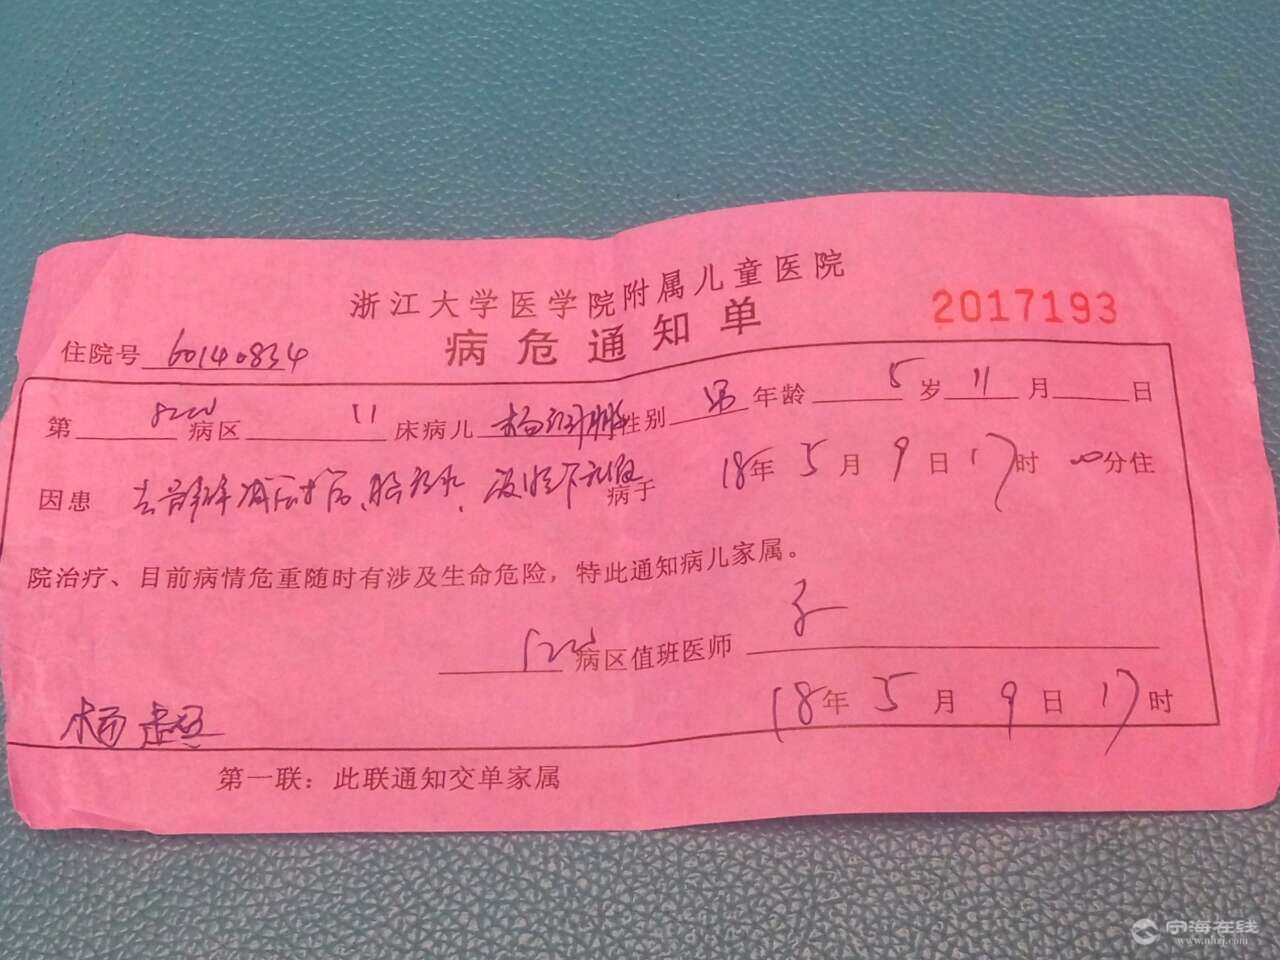 浙江大学医学院附属儿童医院
病危通知单
2017193
住院号 60140834
第 病区 11 床病儿 杨 性别 男 年龄 5 岁 11 月 日
因患 去骨瓣减压术后、脑积水、硬膜下积液 病于 18年 5 月 9 日 17 时 00分住
院治疗、目前病情危重随时有涉及生命危险，特此通知病儿家属。
病区值班医师
杨超
18年 5 月 9 日 17 时
第一联：此联通知交单家属
宁海在线
www.nhzj.com